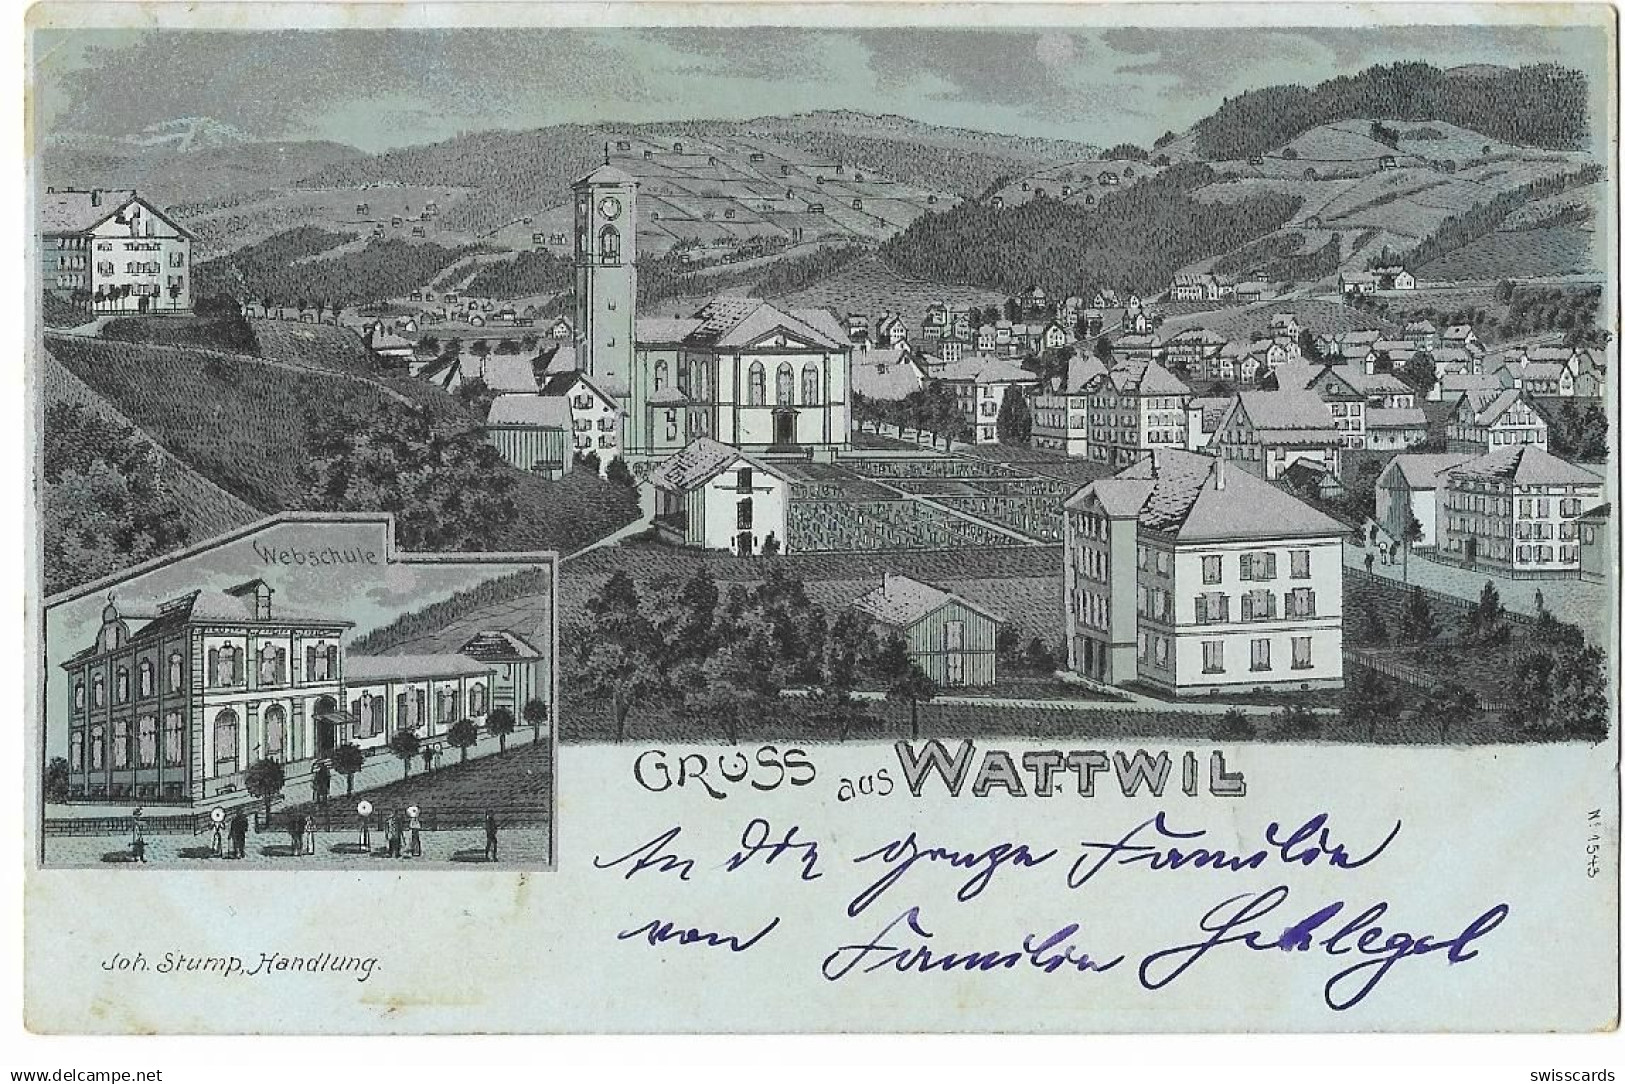 Webschule
GRUSS aus WATTWIL
An die ganze Familie
von Familie Schlegel
Joh. Stump, Handlung.
No. 1543
www.delcampe.net
swisscards